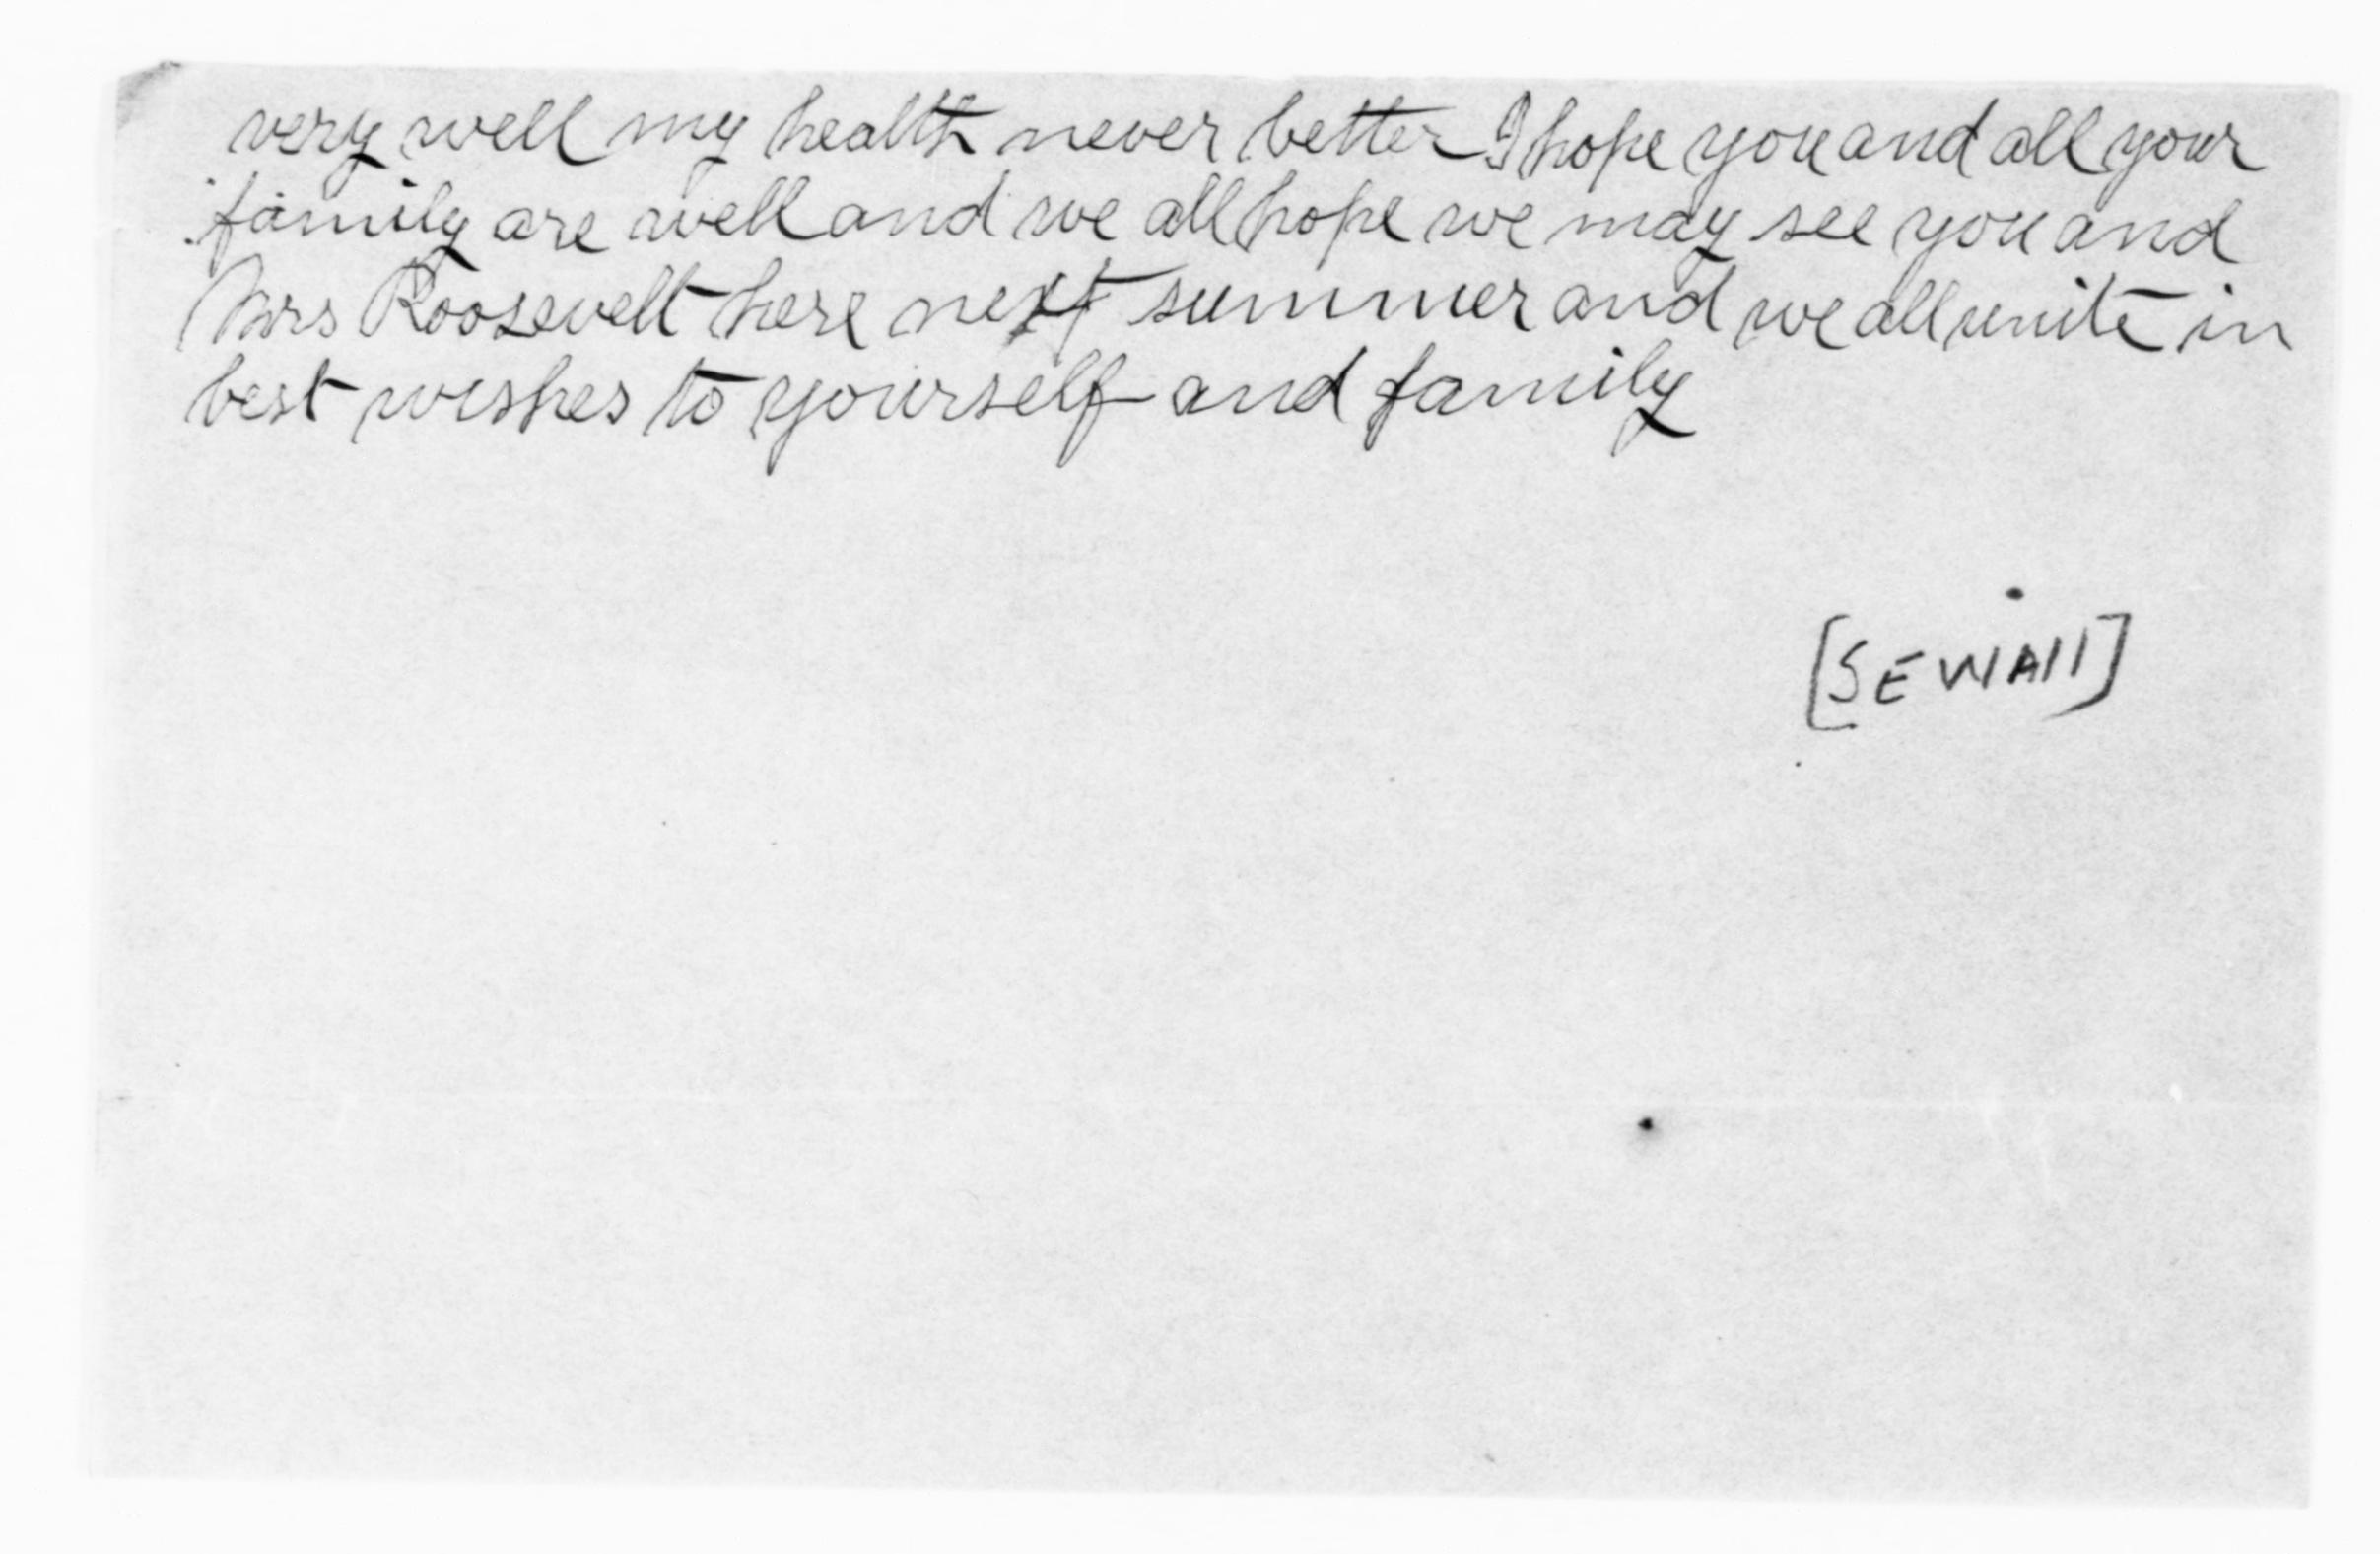 very well my health never better I hope you and all your
family are well and we all hope we may see you and
Mrs Roosevelt here next summer and we all unite in
best wishes to yourself and family
[SEWAll]